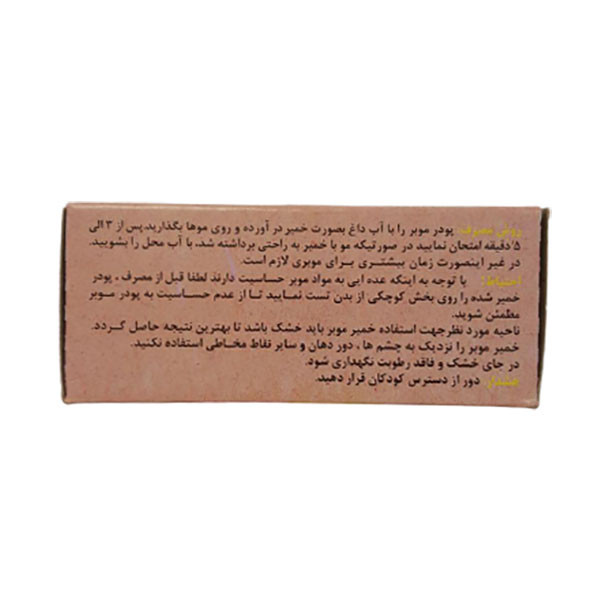 روش مصرف: پودر موبر را با آب داغ بصورت خمیر در آورده و روی موها بگذارید.پس از ۳ الی
۵ دقیقه امتحان نمایید در صورتیکه مو با خمیر به راحتی برداشته شد، با آب محل را بشویید.
در غیر اینصورت زمان بیشتری برای موبری لازم است.
احتیاط: با توجه به اینکه عده ایی به مواد موبر حساسیت دارند لطفا قبل از مصرف، پودر
خمیر شده را روی بخش کوچکی از بدن تست نمایید تا از عدم حساسیت به پودر موبر
مطمئن شوید.
ناحیه مورد نظر جهت استفاده خمیر موبر باید خشک باشد تا بهترین نتیجه حاصل گردد.
خمیر موبر را نزدیک به چشم ها، دور دهان و سایر نقاط مخاطی استفاده نکنید.
در جای خشک و فاقد رطوبت نگهداری شود.
هشدار: دور از دسترس کودکان قرار دهید.